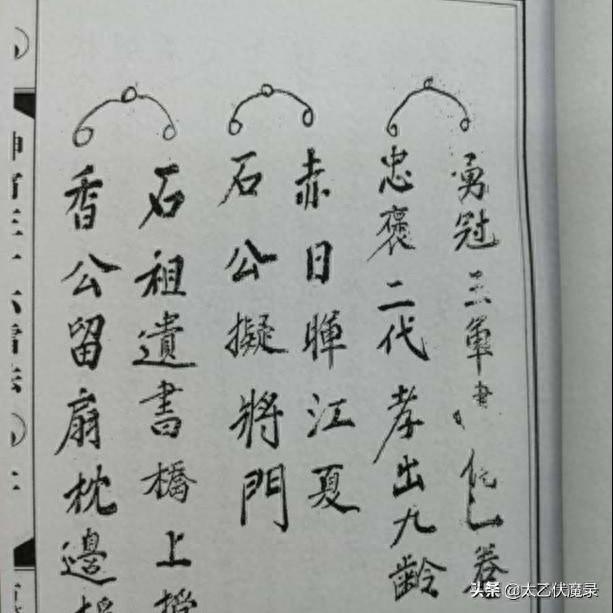 勇冠三軍書一卷
忠褒二代孝出九齡
赤日暉江夏
石公擬將門
石祖遺書橋上授
香公留扇枕邊
头条 @太乙伏魔录